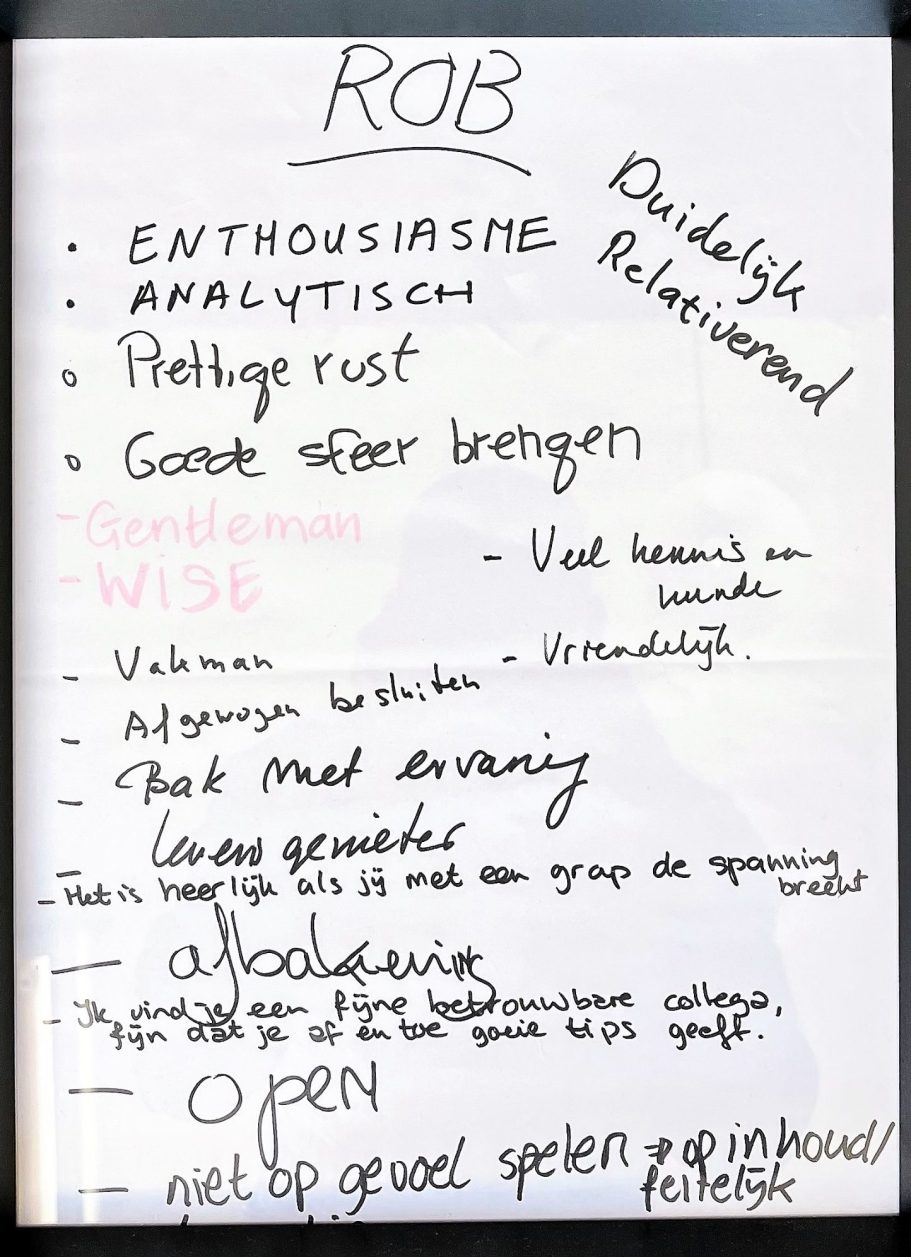 ROB
Duidelijk
Relativerend
• ENTHOUSIASME
• ANALYTISCH
o Prettige rust
o Goede sfeer brengen
- Gentleman
- WISE
- Veel kennis en
kunde
- Vriendelijk.
- Vakman
- Afgewogen besluiten
- Bak met ervaring
- levens genieter
- Het is heerlijk als jij met een grap de spanning
breekt
- afbakening
- Ik vind je een fijne betrouwbare collega,
fijn dat je af en toe goeie tips geeft.
- open
- niet op gevoel spelen ⇒ op inhoud/
feitelijk